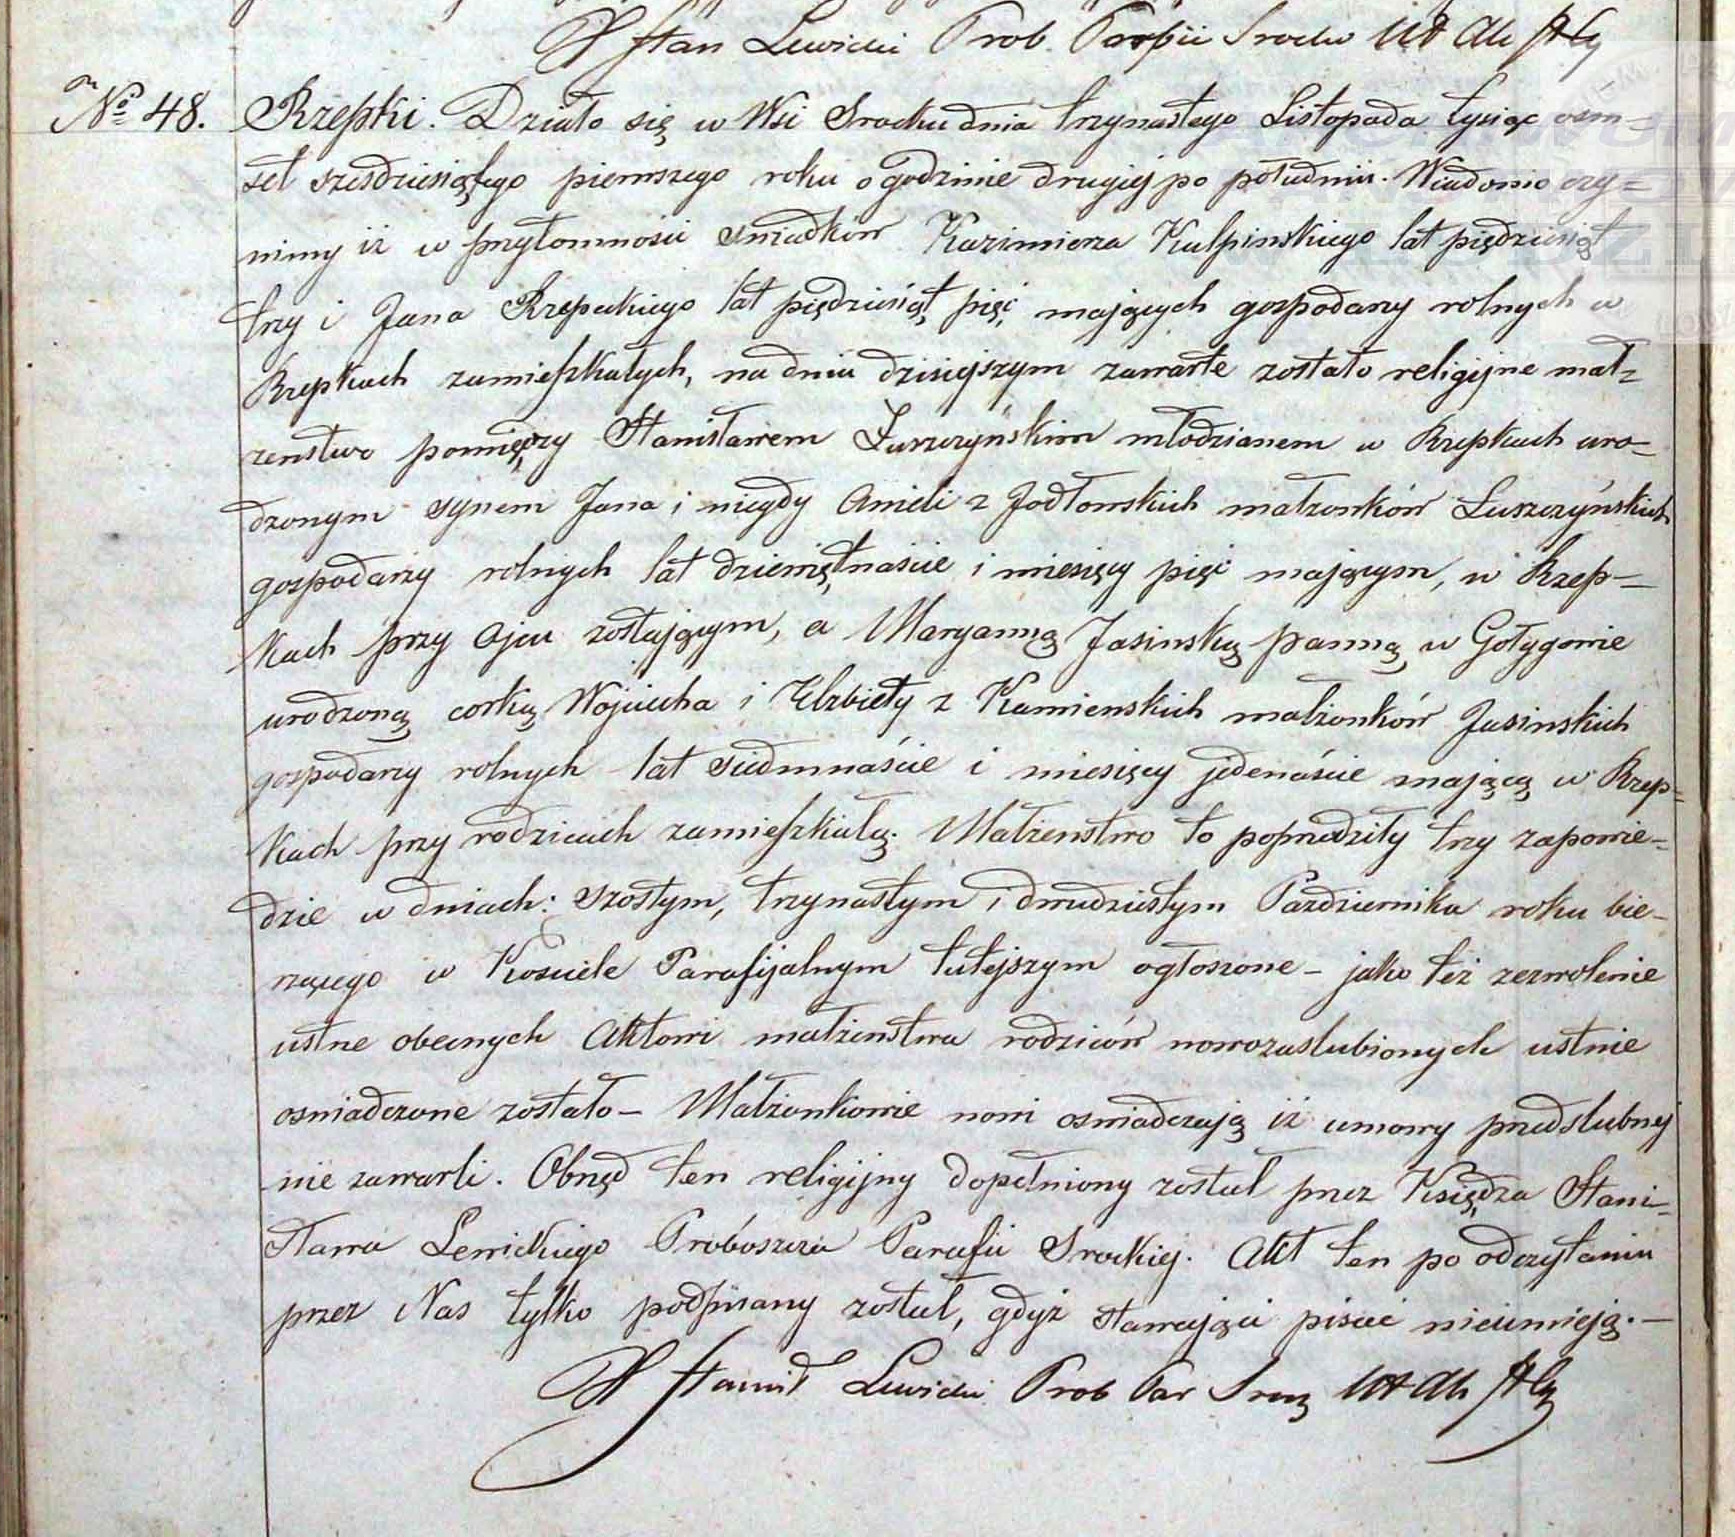 X Stan Lewicki Prob. Parfii Srocku
No 48. Rzepki. Działo się w Wsi Srocku dnia trzynastego Listopada tysiąc ośm=
set sześdziesiątego pierwszego roku o godzinie drugiej po południu. Wiadomo czy=
nimy iż w przytomności swiadków Kazimierza Kulpinskiego lat piędziesiąt
trzy i Jana Rzepeckiego lat piędziesiąt pięć mających gospodarzy rolnych w
Rzepkach zamieszkałych, na dniu dzisiejszym zawarte zostało religijne mał=
zenstwo pomiędzy Stanisławem Łuszczyńskim młodzianem w Rzepkach uro=
dzonym synem Jana i niegdy Anieli z Jodłowskich małzonków Łuszczyńskich
gospodarzy rolnych lat dziewiętnaście i miesięcy pięć mającym, w Rzep=
kach przy Ojcu zostającym, a Maryanną Jasinską panną w Gołygowie
urodzoną corką Wojciecha i Elzbiety z Kamienskich małżonków Jasinskich
gospodarzy rolnych lat siedmnaście i miesięcy jedenaście mającą w Rzep=
kach przy rodzicach zamieszkałą. Małzenstwo to poprzedziły trzy zapowie=
dzie w dniach: szostym, trzynastym i dwudziestym Pazdziernika roku bie=
rzącego w Kosciele Parafijalnym tutejszym ogłoszone – jako też zezwolenie
ustne obecnych Aktowi małżenstwa rodziców nowozaslubionych ustnie
oswiadczone zostało – Małżonkowie nowi oswiadczają iż umowy przedslubnej
nie zawarli. Obrzęd ten religijny dopełniony został przez Księdza Stani=
sława Lewickiego Próboszcza Parafii Srockiej. Akt ten po odczytaniu
przez Nas tylko podpisany został, gdyż stawający pisać nieumieją. –
X Stanisł Lewicki Prob Par Sroc